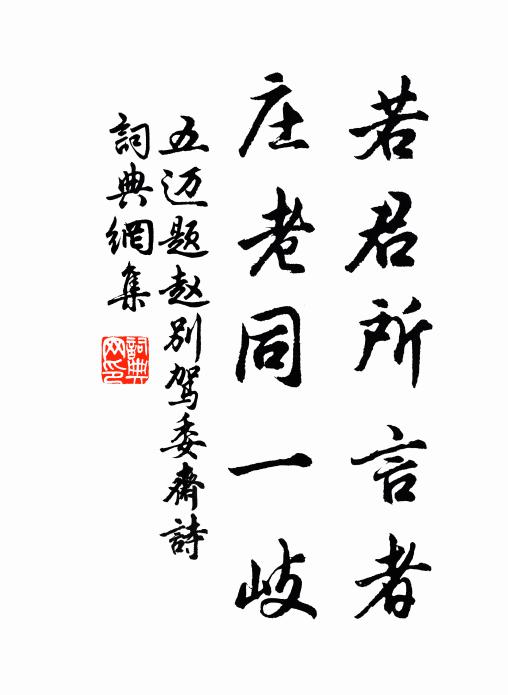 若君所言者
庄老同一岐
五迈题赵别驾委齋詩
詞典網集
詞典网印